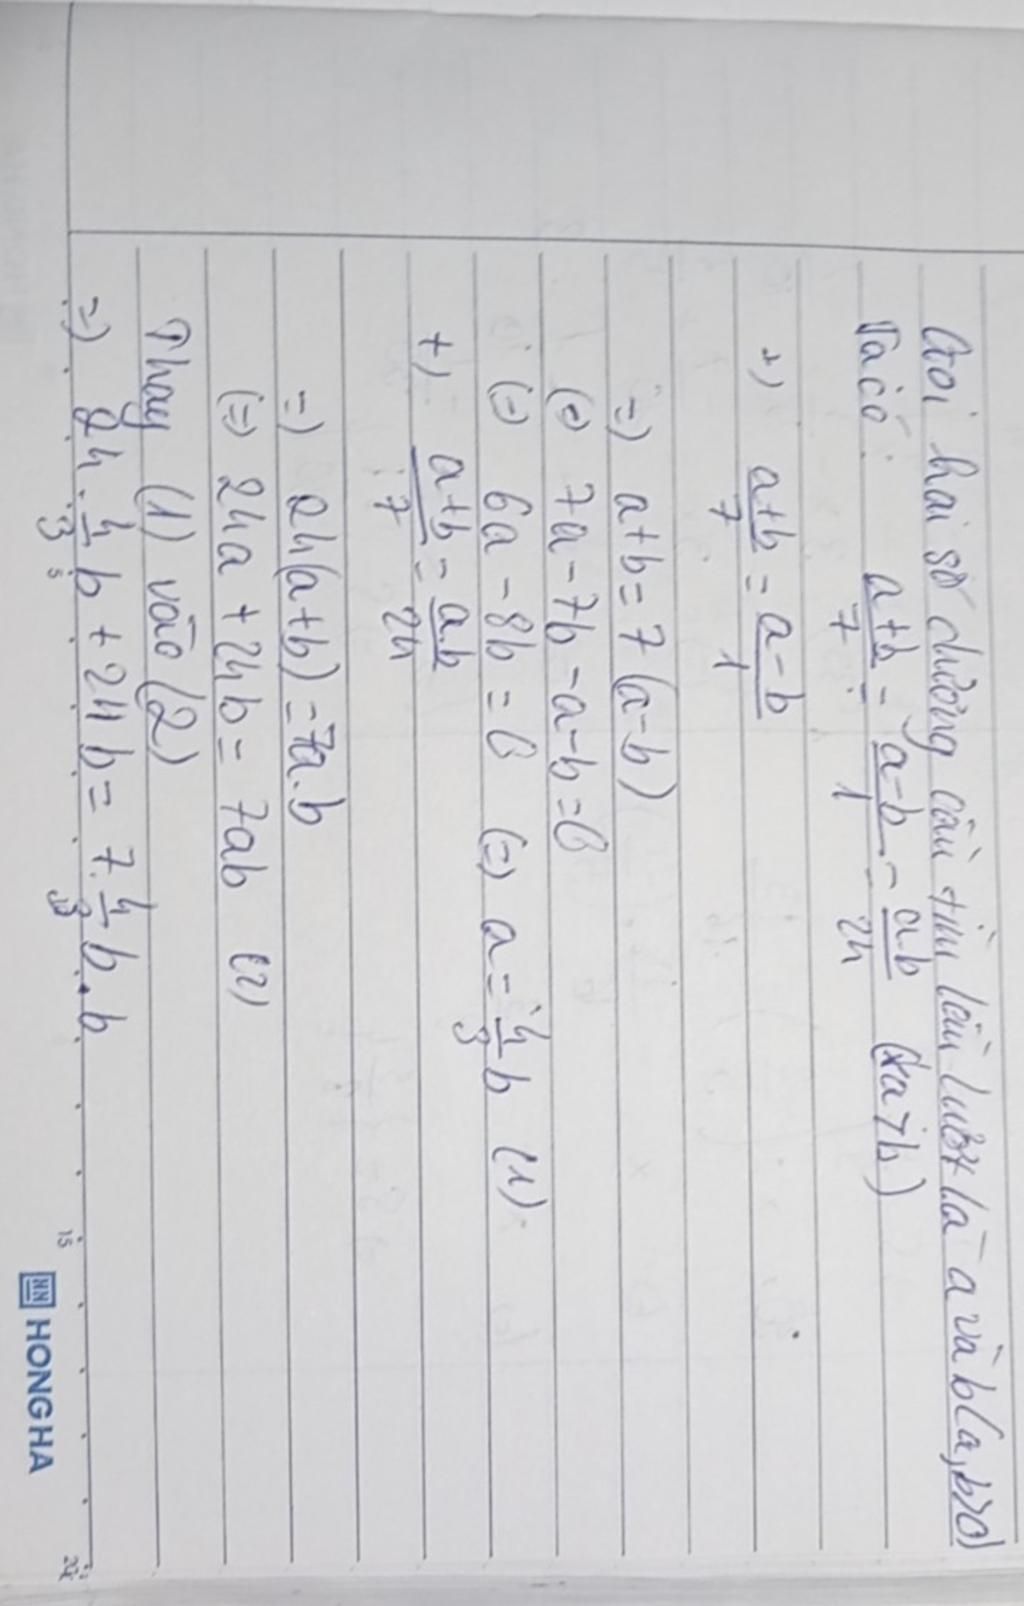 Gọi hai số dương cần tìm lần lượt là a và b (a,b>0)
Ta có: a+b/7 = a-b/1 = a.b/24 (a>b)
+) a+b/7 = a-b/1
=) a+b = 7(a-b)
(=) 7a-7b-a-b=0
(=) 6a-8b=0 (=) a=4/3b (1)
+) a+b/7 = a.b/24
=) 24(a+b)=7a.b
(=) 24a+24b=7ab (2)
Thay (1) vào (2)
=) 24.4/3b+24b=7.4/3b.b
15
HONG HA